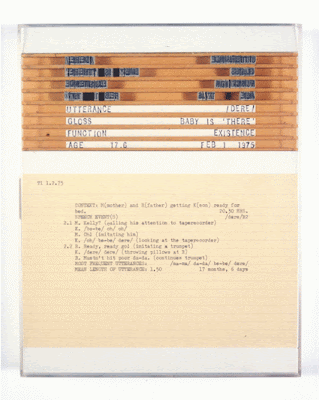 UTTERANCE /DERE/
GLOSS BABY IS 'THERE'
FUNCTION EXISTENCE
AGE 17.6 FEB 1 1975
T1 1.2.75
CONTEXT: M(other) and F(father) getting K(son) ready for
bed. 20.30 HRS.
SPEECH EVENT(S) /dere/82
2.1 M. Kelly? (calling his attention to taperecorder)
K. /be-be/ oh/ oh/
M. Oh! (imitating him)
K. /oh/ be-be/ dere/ (looking at the taperecorder)
2.2 R. Ready, ready goi (imitating a trumpet)
K. /dere/ dere/ (throwing pillows at R)
R. Mustn't hit poor da-da. (continues trumpet)
MOST FREQUENT UTTERANCES: /ma-ma/ da-da/ be-be/ dere/
MEAN LENGTH OF UTTERANCE: 1.50 17 months, 6 days